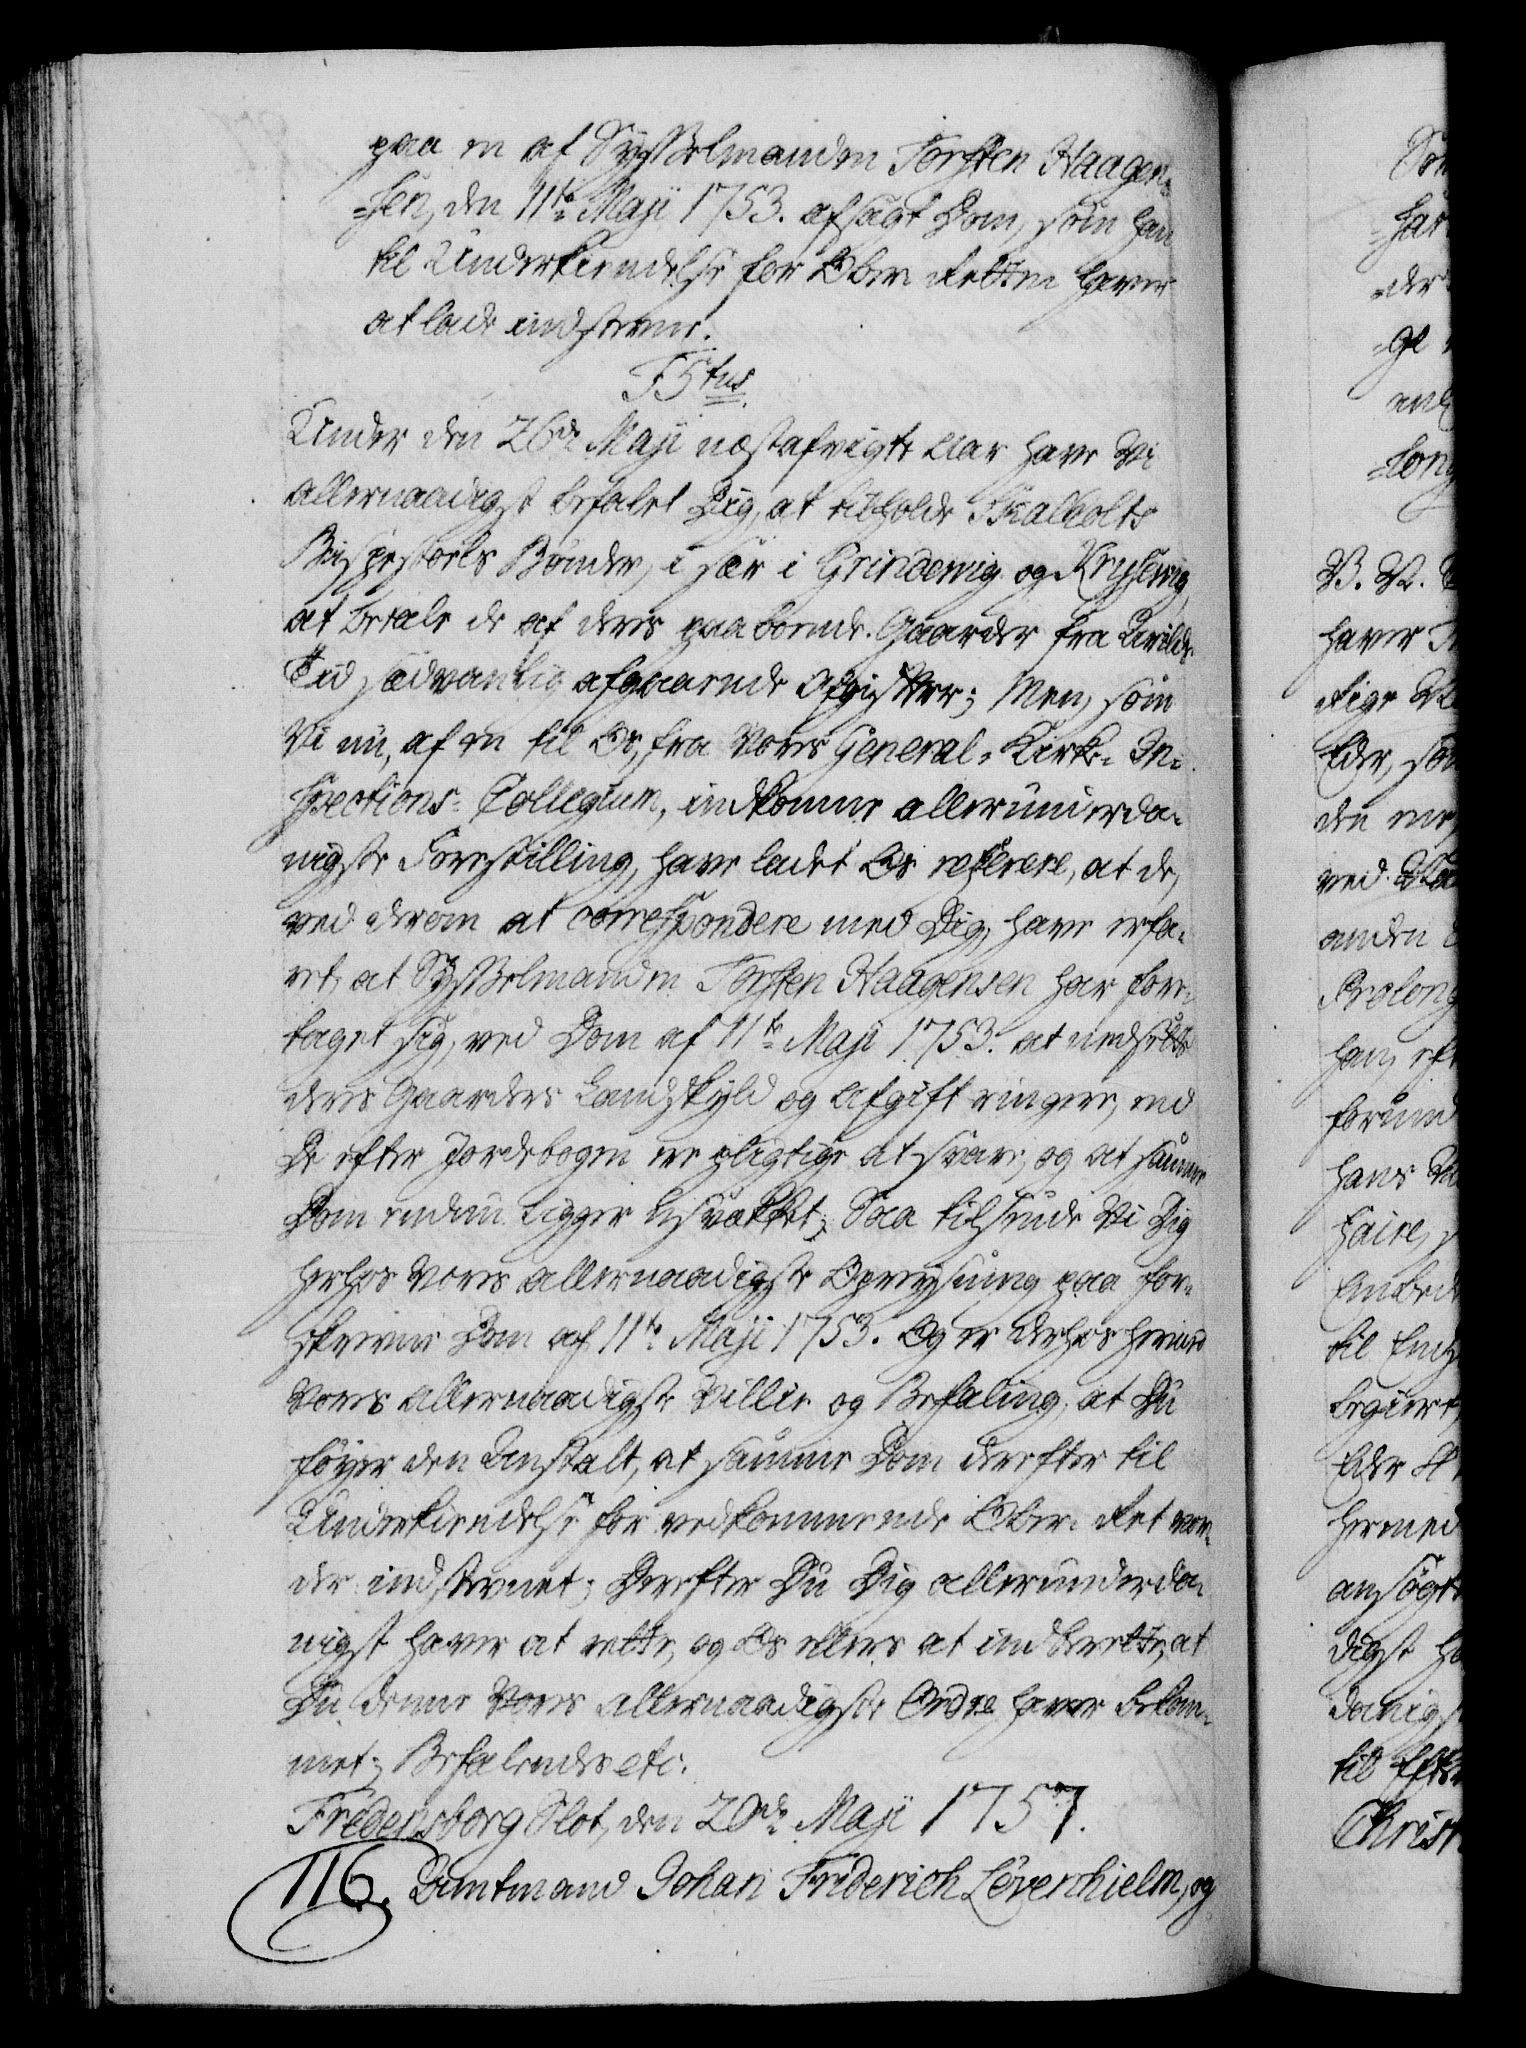 paa en af Sysselmanden Torsten Haagen-
-sen, den 11te Maji 1753. afsagt Dom, som han
til Underkiendelse for Ober-Retten haver
at lade indstevne.
F5tus
Under den 26de Maji næstafvigte Aar have Vi
allernaadigst befalet Dig, at tilholde Skalholts
Bispestoels Bønder, i sær i Grindevig og Krysevig,
at betale de af deres paaboende Gaarder fra Arilds
Tid sædvanlig afgaaende Afgifter; Men, som
Vi nu, af en til Os, fra Vores General-Kirke-In-
spections-Collegium, indkomne allerunderda-
nigste Forestilling, have ladet Os referere, at de,
ved derom at correspondere med Dig, have erfa-
ret, at Sysselmanden Torsten Haagensen har fore-
taget sig, ved Dom af 11te Maji 1753. at nedsætte
deres Gaarders Landskyld og Afgift ringere, end
De efter Jordebogen ere pligtige at svare, og at samme
Dom endnu ligger Usvækket; Saa tilsende Vi Dig
herhos Vores allernaadigste Opreysning paa for-
skrevne Dom af 11te Maji 1753. Og er derhos hermed
Vores allernaadigste Villie og Befaling, at Du
føyer den Anstalt, at samme Dom derefter til
Underkiendelse for vedkommende Ober-Ret vor-
der indstevnet; Derefter Du Dig allerunderda-
nigst haver at rette, og Os ellers at indberette, at
Du denne Vores allernaadigste Ordre haver bekom-
met; Befalendes etc:
Fredensborg Slot, den 20de Maji 1757.
116. Amtmand Johan Friderich Leverchielm, og